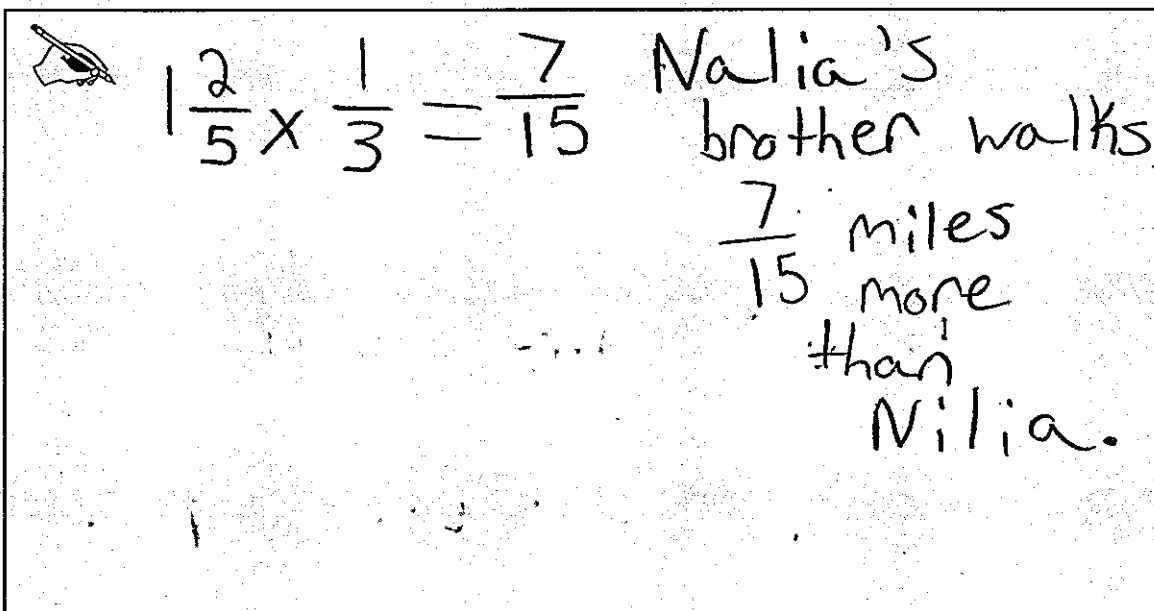 1 2/5 × 1/3 = 7/15 Nalia's
brother walks
7/15 miles
more
than
Nilia.